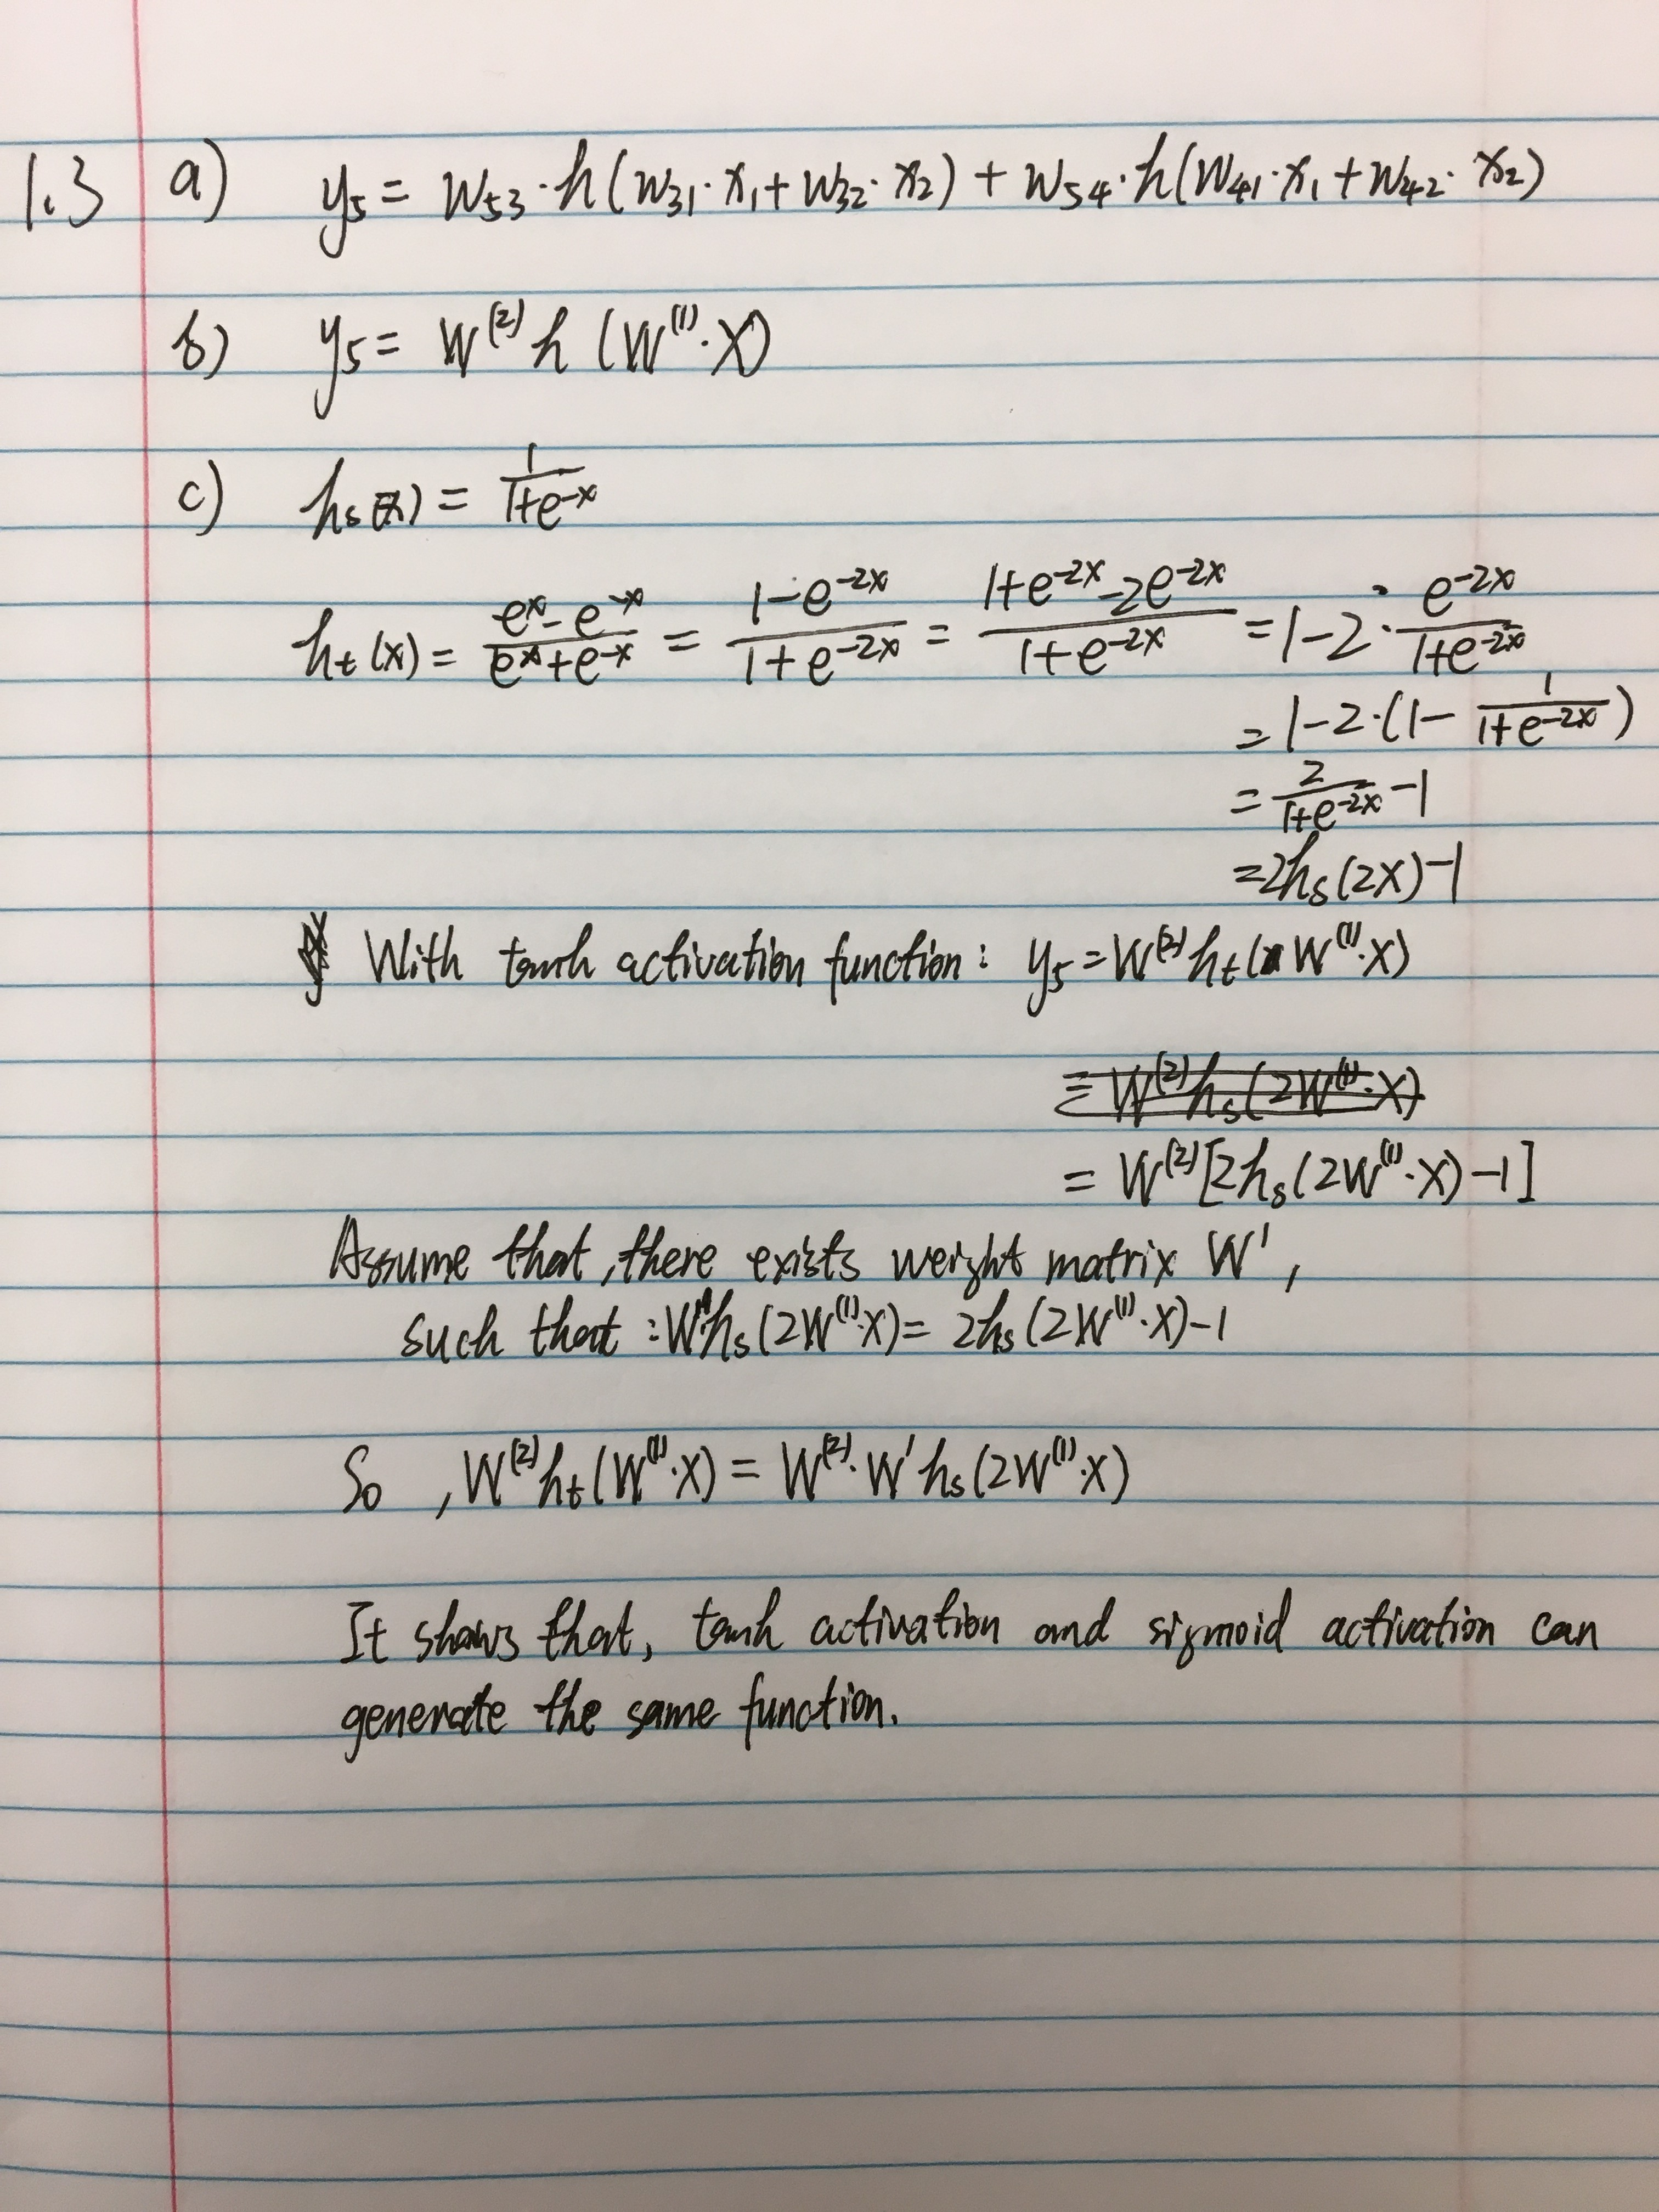 1.3 a) y₅ = w₅₃·h(w₃₁·x₁+w₃₂·x₂) + w₅₄·h(w₄₁·x₁+w₄₂·x₂)
b) y₅ = W⁽²⁾h (W⁽¹⁾·X)
c) hₛ(x) = 1/(1+e^-x)
hₜ(x) = (e^x - e^-x)/(e^x+e^-x) = (1-e^-2x)/(1+e^-2x) = (1+e^-2x-2e^-2x)/(1+e^-2x) = 1-2·e^-2x/(1+e^-2x)
= 1-2·(1- 1/(1+e^-2x))
= 2/(1+e^-2x) -1
=2hₛ(2x)-1
With tanh activation function: y₅=W⁽²⁾hₜ(W⁽¹⁾·X)
= W⁽²⁾hₛ(2W⁽¹⁾·X)
= W⁽²⁾[2hₛ(2W⁽¹⁾·X)-1]
Assume that, there exists weight matrix W',
such that : W'hₛ(2W⁽¹⁾·X)= 2hₛ(2W⁽¹⁾·X)-1
So , W⁽²⁾hₜ(W⁽¹⁾·X) = W⁽²⁾·W'hₛ(2W⁽¹⁾·X)
It shows that, tanh activation and sigmoid activation can
generate the same function.